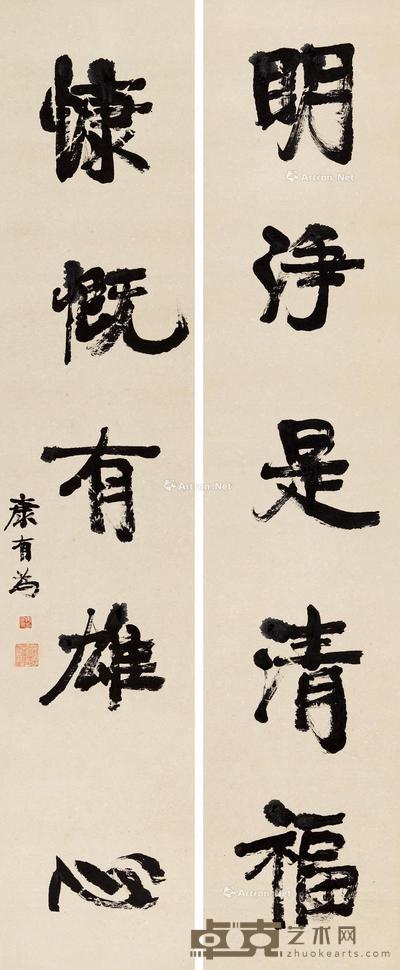 明淨是清福
慷慨有雄心
康有為
Artron.Net
Artron.Net
Artron.Net
卓克艺术网
zhuokearts.com